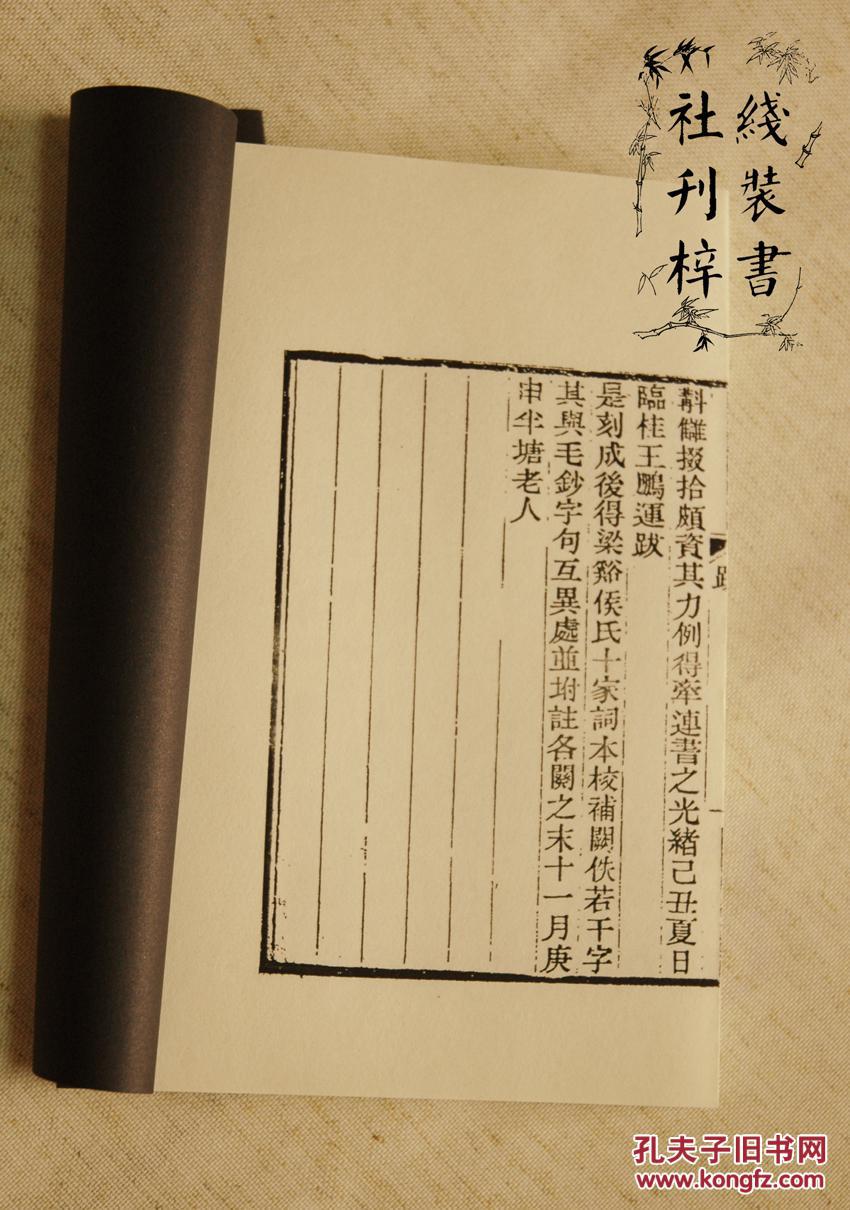 綫裝書
社刊梓
斠讎掇拾頗資其力例得牽連書之光緒己丑夏日
臨桂王鵬運跋
是刻成後得梁谿侯氏十家詞本校補闕佚若干字
其與毛鈔字句互異處並坿註各闋之末十一月庚
申半塘老人
跋
一
孔夫子旧书网
www.kongfz.com